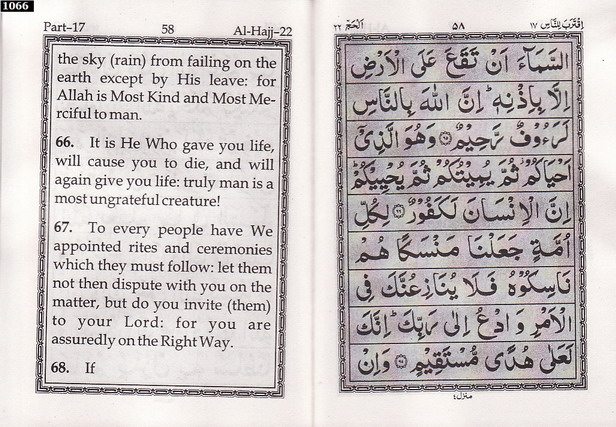 1066
Part-17 58 Al-Hajj-22
the sky (rain) from failing on the
earth except by His leave: for
Allah is Most Kind and Most Me-
rciful to man.
66. It is He Who gave you life,
will cause you to die, and will
again give you life: truly man is a
most ungrateful creature!
67. To every people have We
appointed rites and ceremonies
which they must follow: let them
not then dispute with you on the
matter, but do you invite (them)
to your Lord: for you are
assuredly on the Right Way.
68. If
اِقْتَرَبَ لِلنَّاسِ ١٧ ٥٨ اَلْحَجّ ٢٢
السَّمَآءَ اَنْ تَقَعَ عَلَى الْاَرْضِ
اِلَّا بِاِذْنِهٖ ؕ اِنَّ اللّٰهَ بِالنَّاسِ
لَرَءُوْفٌ رَّحِيْمٌ ۝٦٥ وَهُوَ الَّذِيْۤ
اَحْيَاكُمْ ثُمَّ يُمِيْتُكُمْ ثُمَّ يُحْيِيْكُمْ ؕ
اِنَّ الْاِنْسَانَ لَكَفُوْرٌ ۝٦٦ لِكُلِّ
اُمَّةٍ جَعَلْنَا مَنْسَكًا هُمْ
نَاسِكُوْهُ فَلَا يُنَازِعُنَّكَ فِى
الْاَمْرِ وَ ادْعُ اِلٰى رَبِّكَ ؕ اِنَّكَ
لَعَلٰى هُدًى مُّسْتَقِيْمٍ ۝٦٧ وَاِنْ
منزل ٤